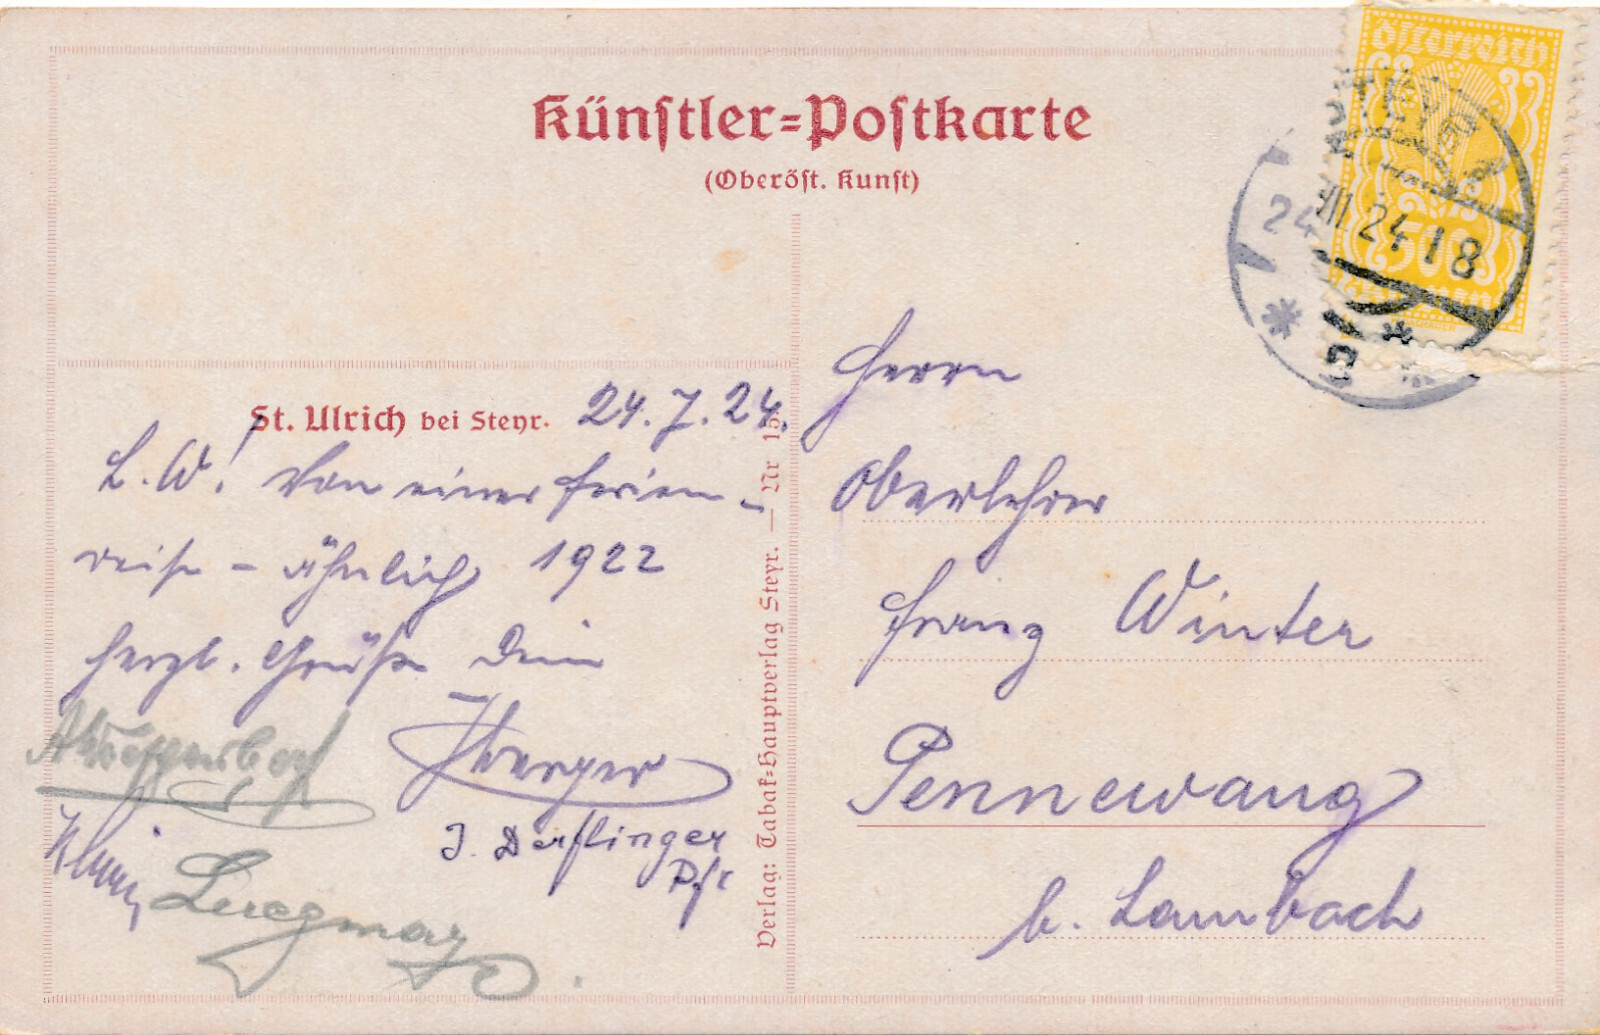 Künstler-Postkarte
(Oberöst. Kunst)
Österreich
500
24 VII 24 18
St. Ulrich bei Steyr. 24.7.24.
L. W! Von einer Ferien-
reise - ähnlich 1922
herzl. Grüße Dein
J. Derflinger
Pfr
Verlag: Tabak-Hauptverlag Steyr. — Nr 15.
Herrn
Oberlehrer
Franz Winter
Pennewang
b. Lambach